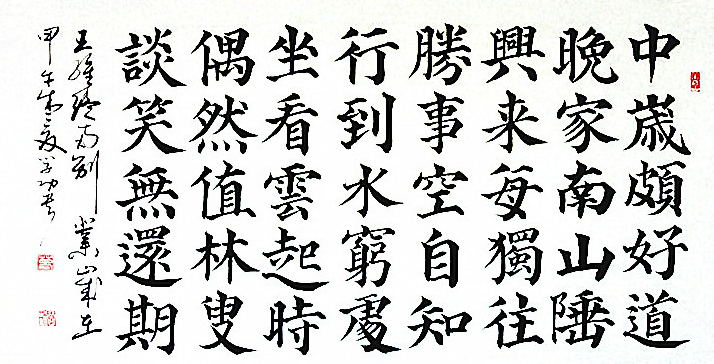 中歲頗好道
晚家南山陲
興来每獨往
勝事空自知
行到水窮處
坐看雲起時
偶然值林叟
談笑無還期
王維終南别業歲在
甲午